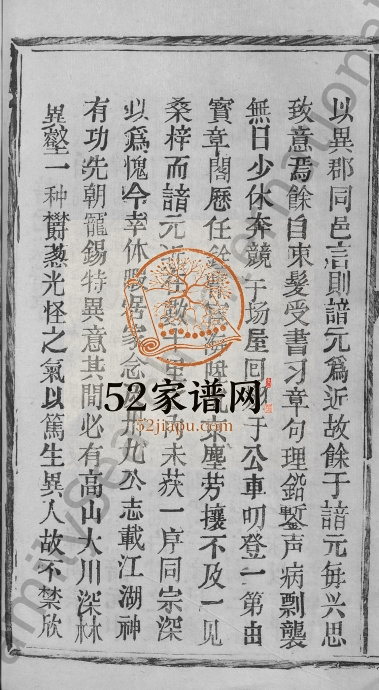 以異郡同邑言則諳元爲近故餘于諳元每兴思
致意焉餘自束髮受書习章句理鉛槧声病剽襲
無日少休奔競于场屋回于公車叨登一第由
寳章閣歷任塵芳攘不及一见
桑梓而諳元未获一序同宗深
以爲愧今幸休居家念九公志載江湖神
有功先朝寵锡特異意其間必有高山大川深林
異壑一种欝葱光怪之氣以篤生異人故不禁欣
52家谱网
52jiapu.com